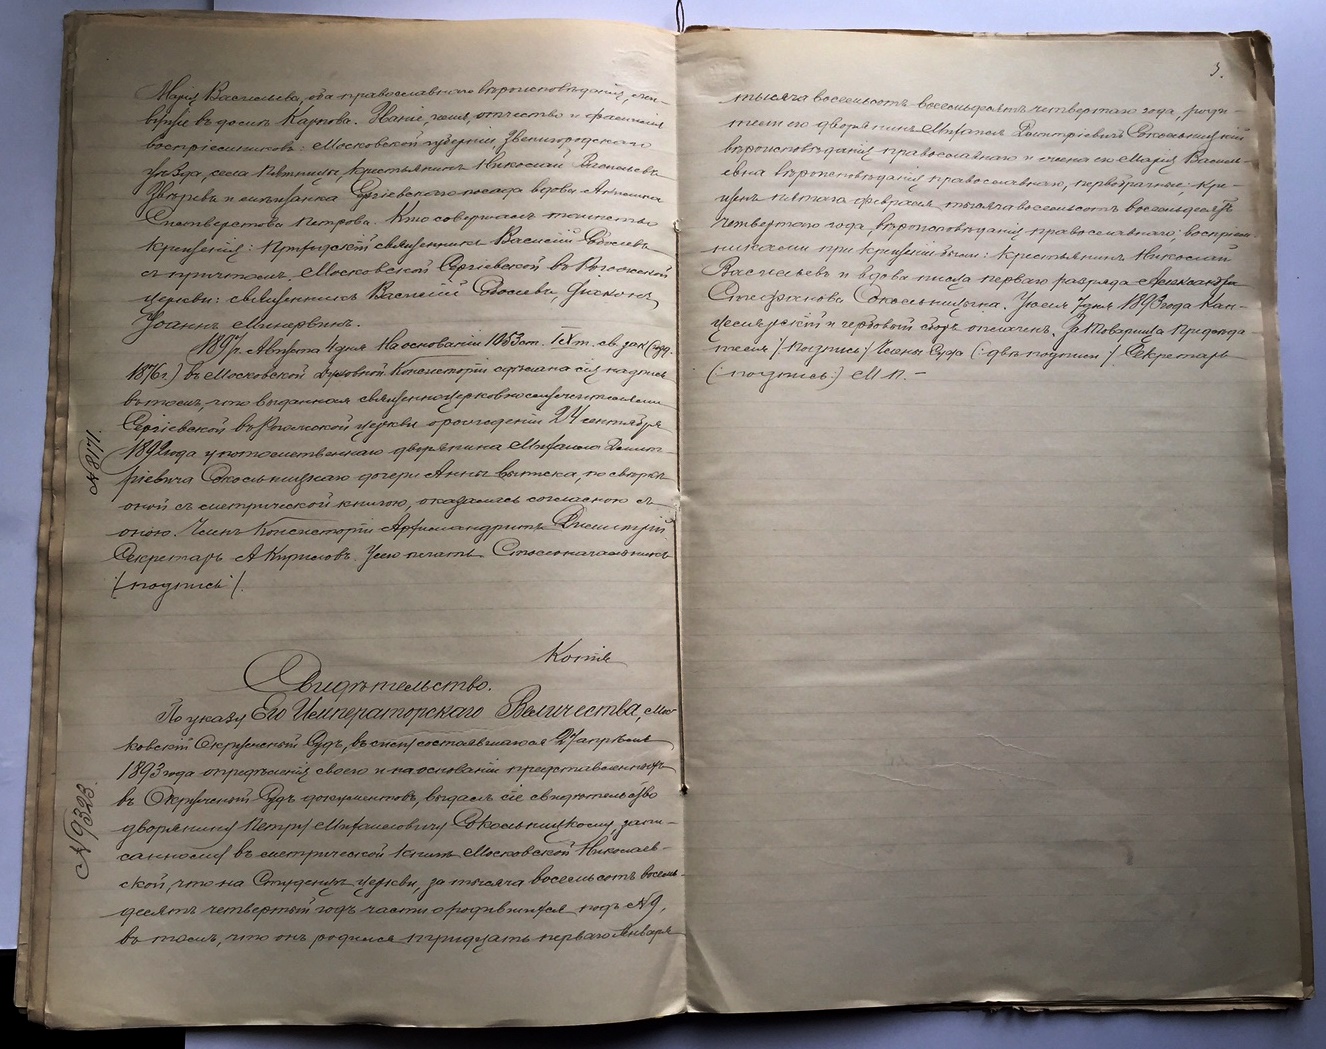 Марія Васильева, оба православнаго вѣроисповѣданія, жи-
вущіе въ домѣ Карпова. Званіе, имя, отчество и фамилія
воспріемниковъ: Московской губерніи, Звенигородскаго
уѣзда, села крестьянинъ Николай Васильевъ
Звѣревъ и мѣщанка Сергіевскаго посада вдова Акилина
Селиверстова Петрова. Кто совершалъ таинство
крещенія: Приходскій священникъ Василій Соболевъ
съ причтомъ, Московской Сергіевской въ Рогожской
церкви: священникъ Василій Соболевъ, діаконъ
Іоаннъ Минервинъ.
1897 г. Августа 4 дня. На основаніи 1053 ст. IX т. св. зак. (изд.
1876 г.) въ Московской Духовной Консисторіи сдѣлана сія надпись
въ томъ, что выданная священноцерковнослужителями
Сергіевской въ Рогожской церкви о рожденіи 24 сентября
1892 года у потомственнаго дворянина Михаила Димит-
ріевича Сокольницкаго дочери Анны выписка, по свѣркѣ
оной съ метрической книгою, оказалась согласною съ
оною. Членъ Консисторіи Архимандритъ Димитрій.
Секретарь А Кириловъ. Столоначальникъ
/подпись/.
№ 8171.
Копія
Свидѣтельство.
По указу Его Императорскаго Величества, Мос-
ковскій Окружный Судъ, въ силу состоявшагося 27 апрѣля
1893 года опредѣленія своего и на основаніи представленныхъ
въ Окружный Судъ документовъ, выдалъ сіе свидѣтельство
дворянину Петру Михаиловичу Сокольницкому, запи-
санному въ метрической книгѣ Московской Николаев-
ской, что на Студенцѣ церкви, за тысяча восемьсотъ восемь-
десятъ четвертый годъ части о родившихся подъ № 9,
въ томъ, что онъ родился тридцать перваго Января
№ 9323.
3.
тысяча восемьсотъ восемьдесятъ четвертаго года, роди-
тели его дворянинъ Михаилъ Димитріевичъ Сокольницкій
вѣроисповѣданія православнаго и жена его Марія Василь-
евна вѣроисповѣданія православнаго, первобрачные: кре-
щенъ пятаго февраля тысяча восемьсотъ восемьдесятъ
четвертаго года, вѣроисповѣданія православнаго; воспріем-
никами при крещеніи были: крестьянинъ Николай
Васильевъ и вдова писца перваго разряда Александра
Стефанова Сокольницкая. Іюля 7 дня 1893 года Кан-
целярскій и гербовый сборъ оплаченъ. За Товарища Предсѣда-
теля /Подпись/ Члены Суда (: двѣ подписи /. Секретарь
(: подпись:) М. П. –